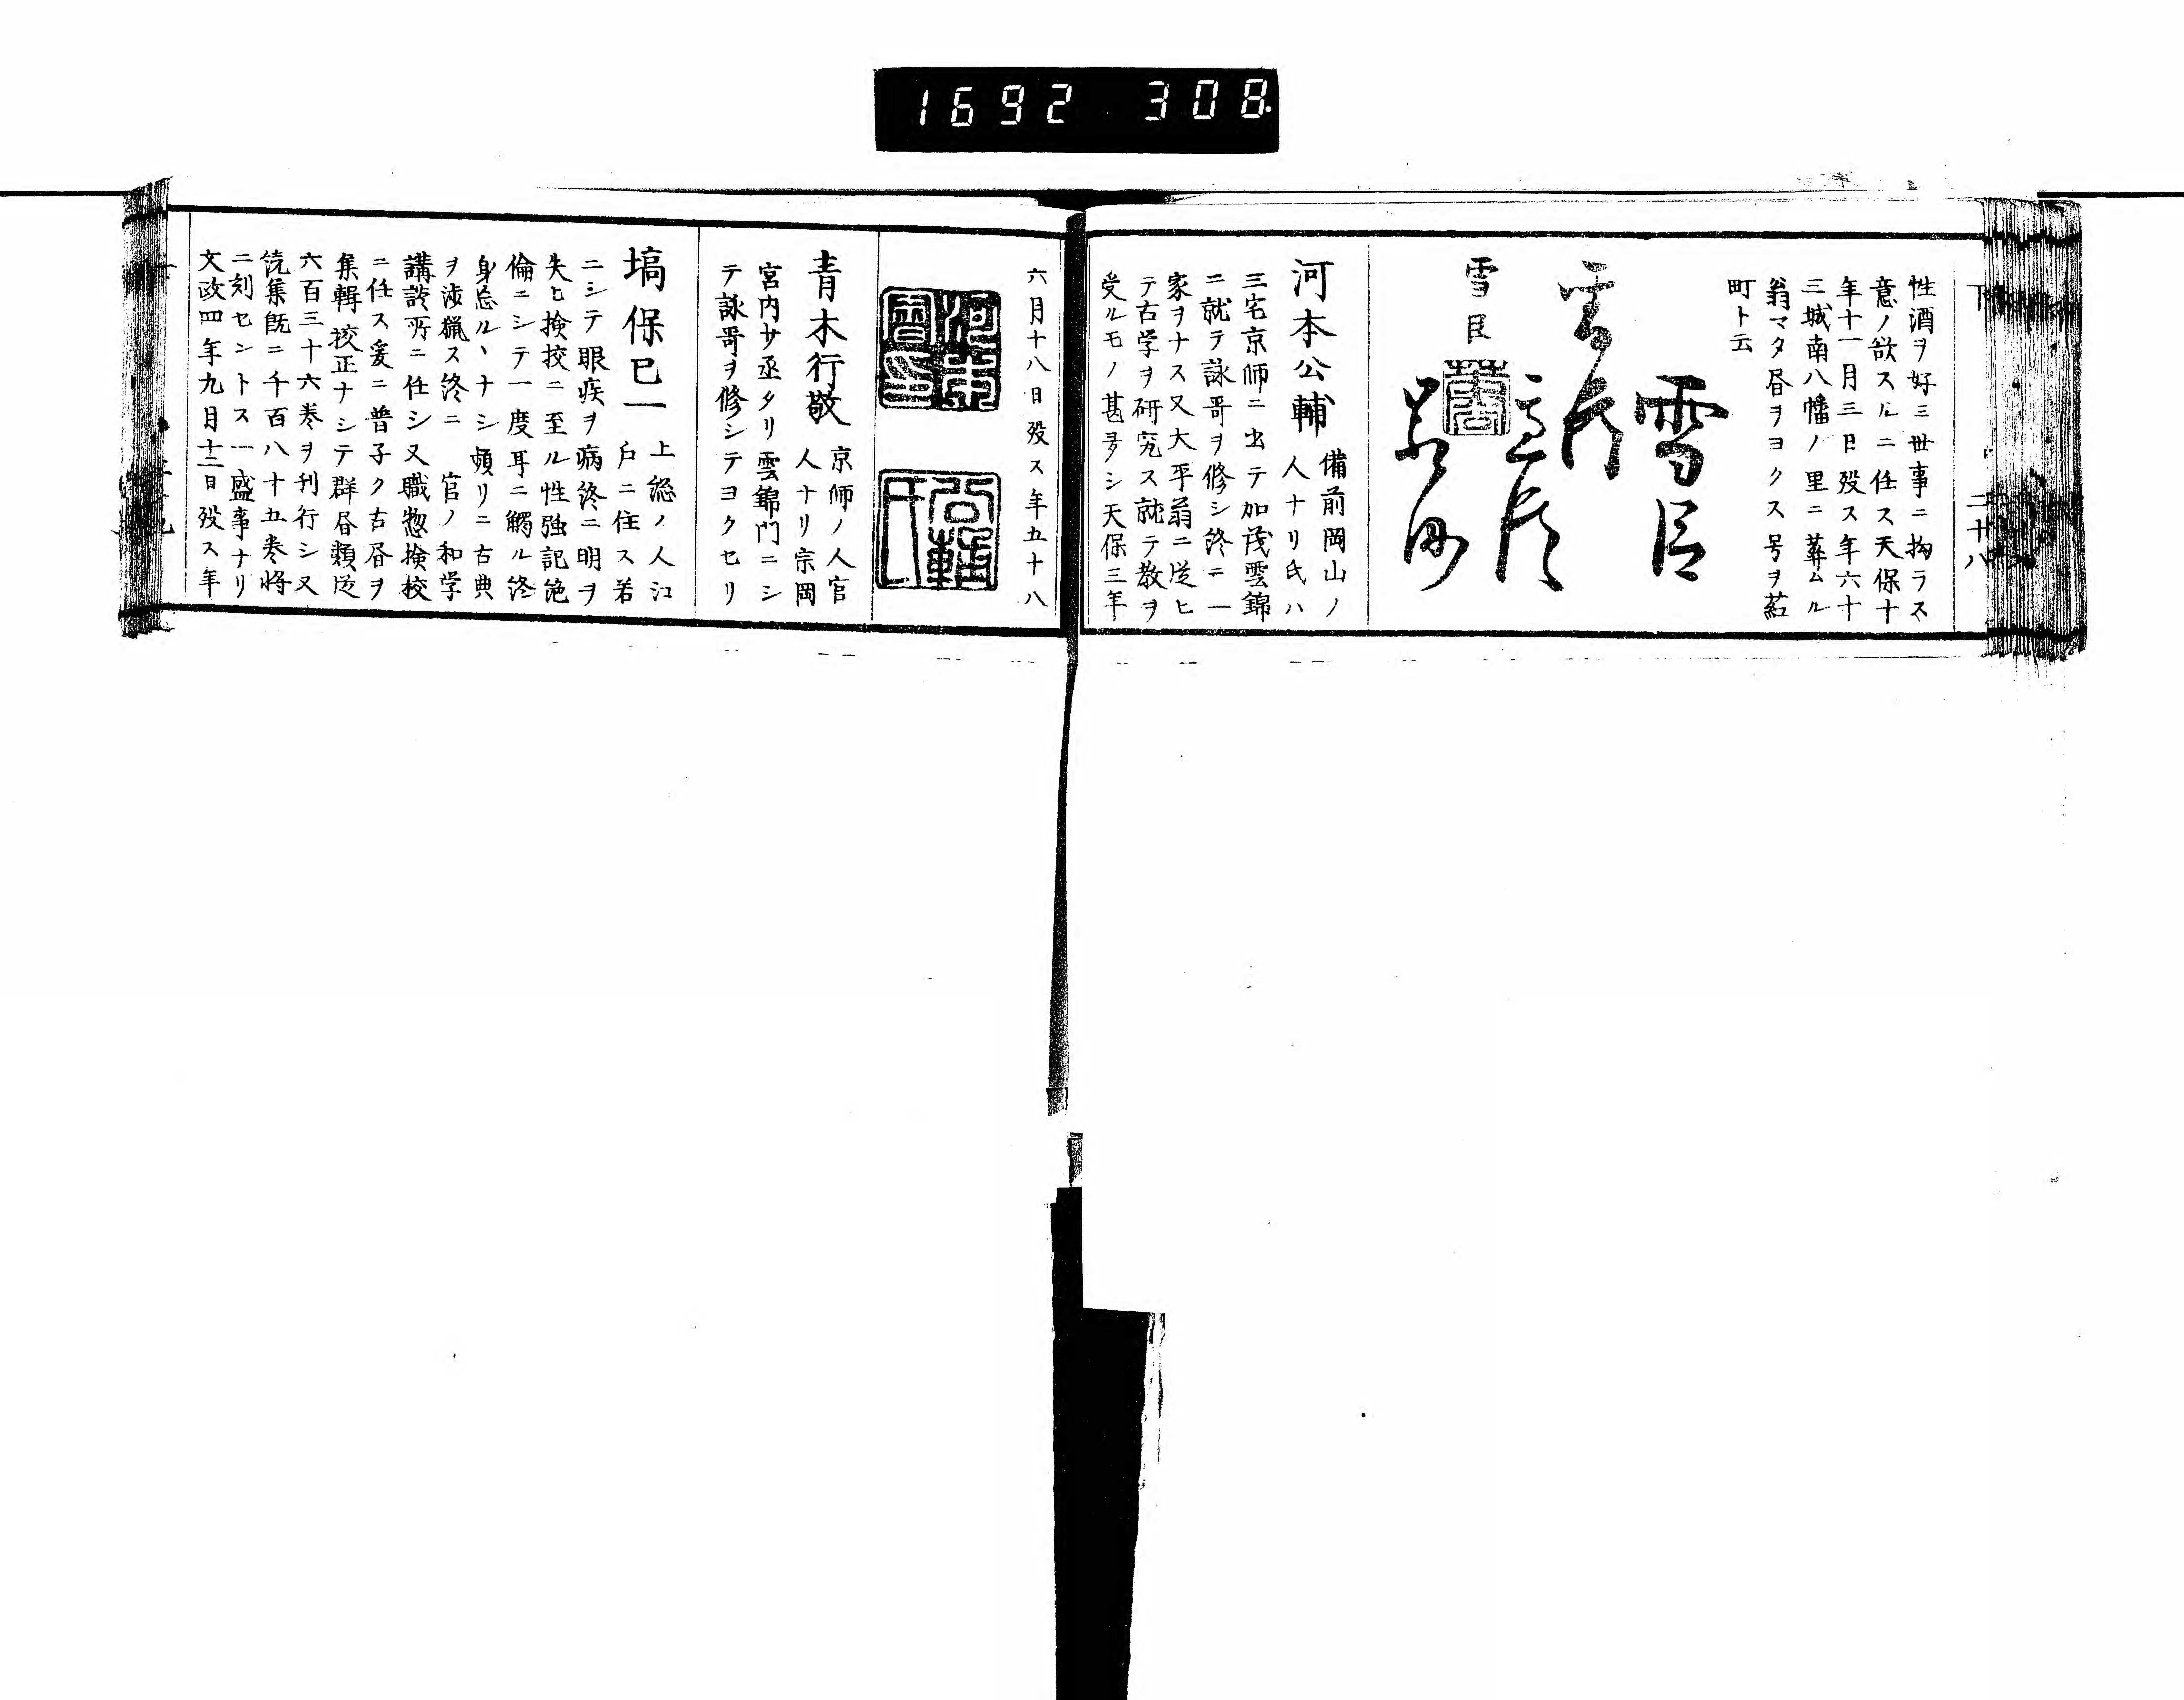 1692 308
下
二十八
性酒ヲ好ミ世事ニ拘ラス
意ノ欲スルニ任ス天保十
年十一月三日殁ス年六十
三城南八幡ノ里ニ葬ムル
翁マタ昼ヲヨクス号ヲ荭
町ト云
雪臣
雪臣
河本公輔
備前岡山ノ
人ナリ氏ハ
三宅京師ニ出テ加茂雲錦
ニ就テ詠哥ヲ修シ終ニ一
家ヲナス又大平翁ニ従ヒ
テ古学ヲ研究ス就テ教ヲ
受ルモノ甚多シ天保三年
六月十八日殁ス年五十八
河本
公輔
青木行敬
京師ノ人官
人ナリ宗岡
宮内少丞タリ雲錦門ニシ
テ詠哥ヲ修シテヨクセリ
塙保己一
上総ノ人江
戸ニ住ス若
ニシテ眼疾ヲ病終ニ明ヲ
失ヒ検挍ニ至ル性強記絶
倫ニシテ一度耳ニ觸ル終
身忘ルヽナシ頻リニ古典
ヲ渉猟ス終ニ官ノ和学
講談所ニ任シ又職惣検校
ニ任ス爰ニ普子ク古昼ヲ
集輯校正ナシテ群昼類従
六百三十六巻ヲ刊行シ又
続集既ニ千百八十五巻将
ニ刻セントス一盛事ナリ
文政四年九月十二日殁ス年